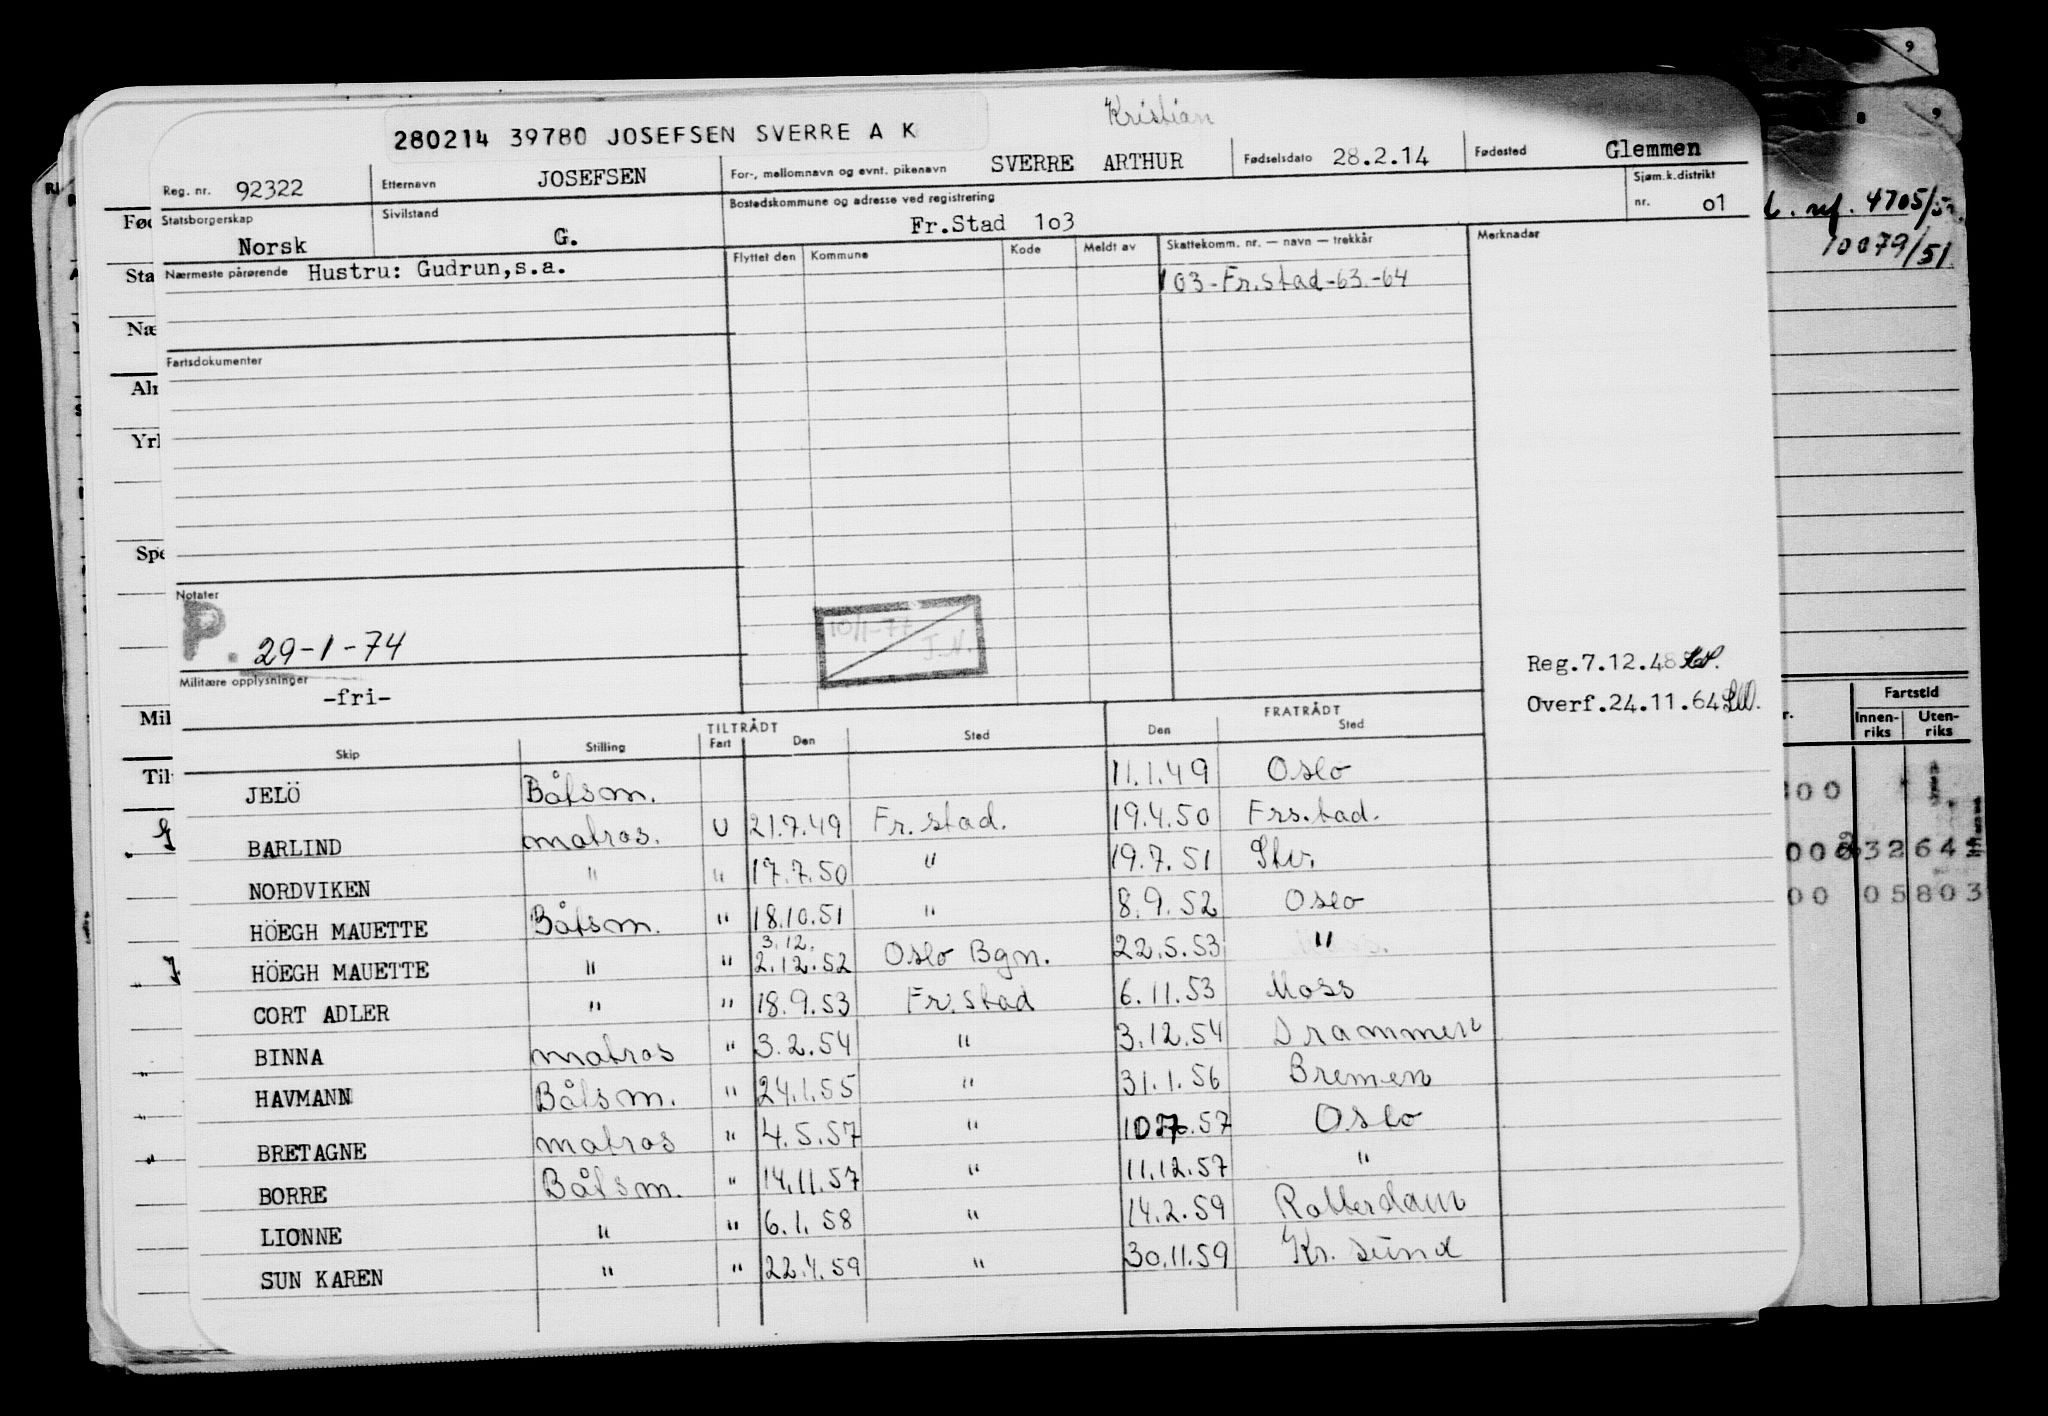 Kristian
280214 39780 JOSEFSEN SVERRE A K
Reg. nr. 92322 Etternavn JOSEFSEN For-, mellomnavn og evnt. pikenavn SVERRE ARTHUR Fødselsdato 28.2.14 Fødested Glemmen
Statsborgerskap Norsk Sivilstand G. Bostedskommune og adresse ved registrering Fr.Stad 1o3 Sjøm.k.distrikt nr. o1
Nærmeste pårørende Hustru: Gudrun,s.a. Flyttet den Kommune Kode Meldt av Skattekomm. nr. — navn — trekkår Merknader
103-Fr.stad-63-64
Fartsdokumenter
Notater
P. 29-1-74
10/1-77 J.N.
Militære opplysninger
-fri-
Reg.7.12.48
Overf.24.11.64
TILTRÅDT FRATRÅDT
Skip Stilling Fart Den Sted Den Sted
JELÖ Båtsm. 11.1.49 Oslo
BARLIND matros. U 21.7.49 Fr.stad. 19.4.50 Frs.tad.
NORDVIKEN " " 17.7.50 " 19.7.51 Stv.
HÖEGH MAUETTE Båtsm. " 18.10.51 " 8.9.52 Oslo
3.12.
HÖEGH MAUETTE " " 2.12.52 Oslo Bgn. 22.5.53 "
CORT ADLER " " 18.9.53 Fr.stad 6.11.53 Moss
BINNA matros " 3.2.54 " 3.12.54 Drammen
HAVMANN Båtsm. " 24.1.55 " 31.1.56 Bremen
BRETAGNE matros " 4.5.57 " 10.7.57 Oslo
BORRE Båtsm. " 14.11.57 " 11.12.57 "
LIONNE " " 6.1.58 " 14.2.59 Rotterdam
SUN KAREN " " 22.4.59 " 30.11.59 Kr.sund
Fød
Sta
Næ
Alr
Yrl
Spe
Mil
Til
9
8 9
nf. 4705/51
10079/51
Fartstid
Innen-riks Uten-riks
00
00 32 64
00 05 803